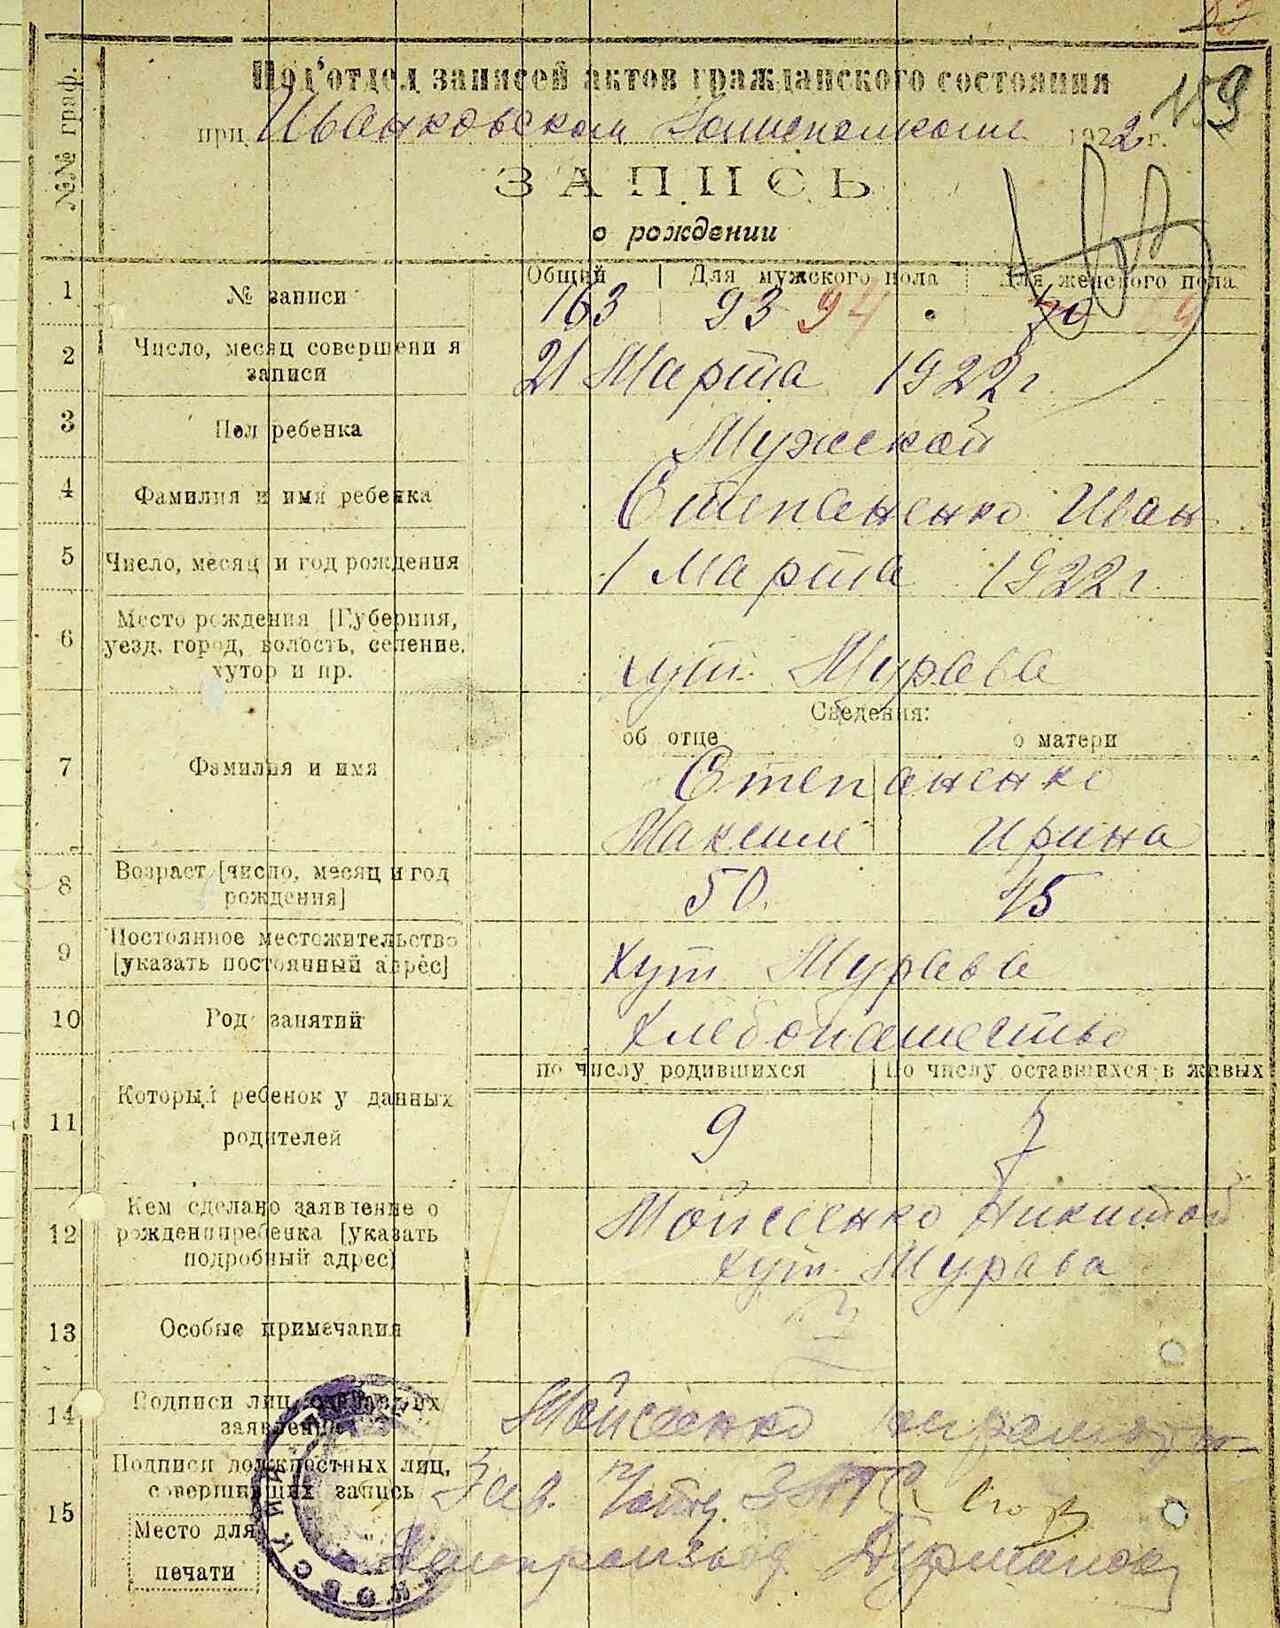 №№ граф.
Под'отдел записей актов гражданского состояния
при Иванковском Волисполкоме 1922 г.
159
ЗАПИСЬ
о рождении
Общий Для мужского пола Для женского пола
1 № записи 163 93 94 70 69
2 Число, месяц совершения
записи 21 Марта 1922 г
3 Пол ребенка Мужской
4 Фамилия и имя ребенка Степаненко Иван
5 Число, месяц и год рождения 1 Марта 1922 г.
6 Место рождения [Губерния,
уезд, город, волость, селение,
хутор и пр. хут. Мурава
Сведения:
об отце о матери
7 Фамилия и имя Степаненко
Максим Ирина
8 Возраст [число, месяц и год
рождения] 50. 45
9 Постоянное местожительство
[указать постоянный адрес] Хут Мурава
10 Род занятий Хлебопашество
по числу родившихся По числу оставшихся в живых
11 Который ребенок у данных
родителей 9 7
12 Кем сделано заявление о
рождении ребенка [указать
подробный адрес] Мойсеенко Никитой
хут. Мурава
13 Особые примечания
14 Подписи лиц, сделавших
заявление Мойсеенко неграмотн
15 Подписи должностных лиц,
совершивших запись Зав. ЗАГС
Место для
печати Делопроизвод.